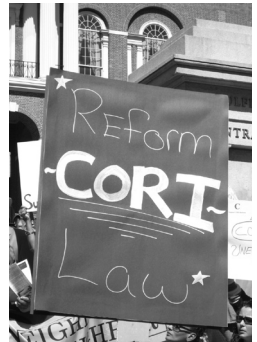 Reform
~CORI~
Law